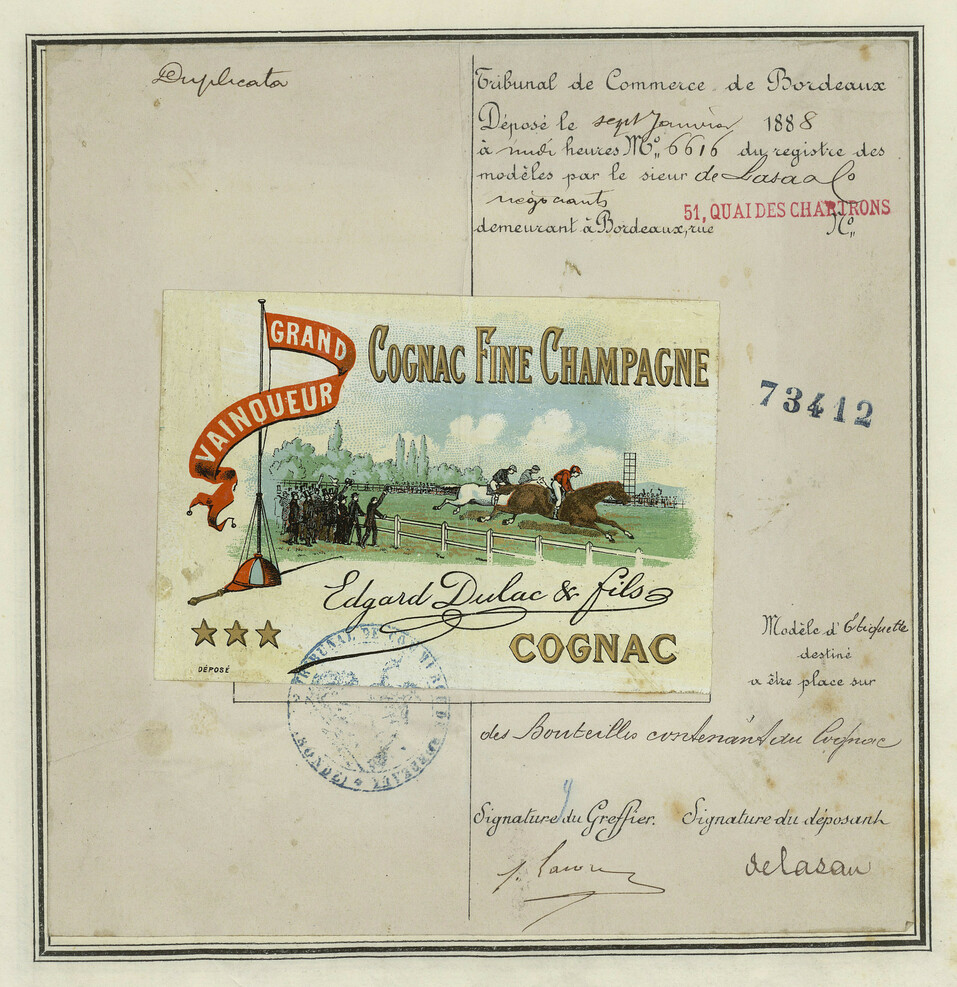 Duplicata
Tribunal de Commerce de Bordeaux
Déposé le sept Janvier 1888
à midi heures No. 6616 du registre des
modèles par le sieur de Lasa & Co
négociants
51, QUAI DES CHARTRONS
demeurant à Bordeaux, rue No.
GRAND
VAINQUEUR
COGNAC FINE CHAMPAGNE
73412
Edgard Dulac & fils
COGNAC
DÉPOSÉ
TRIBUNAL DE COMMERCE DE BORDEAUX
Modèle d'Etiquette
destiné
a être place sur
des Bouteilles contenant du Cognac
Signature du Greffier. Signature du déposant
delasau